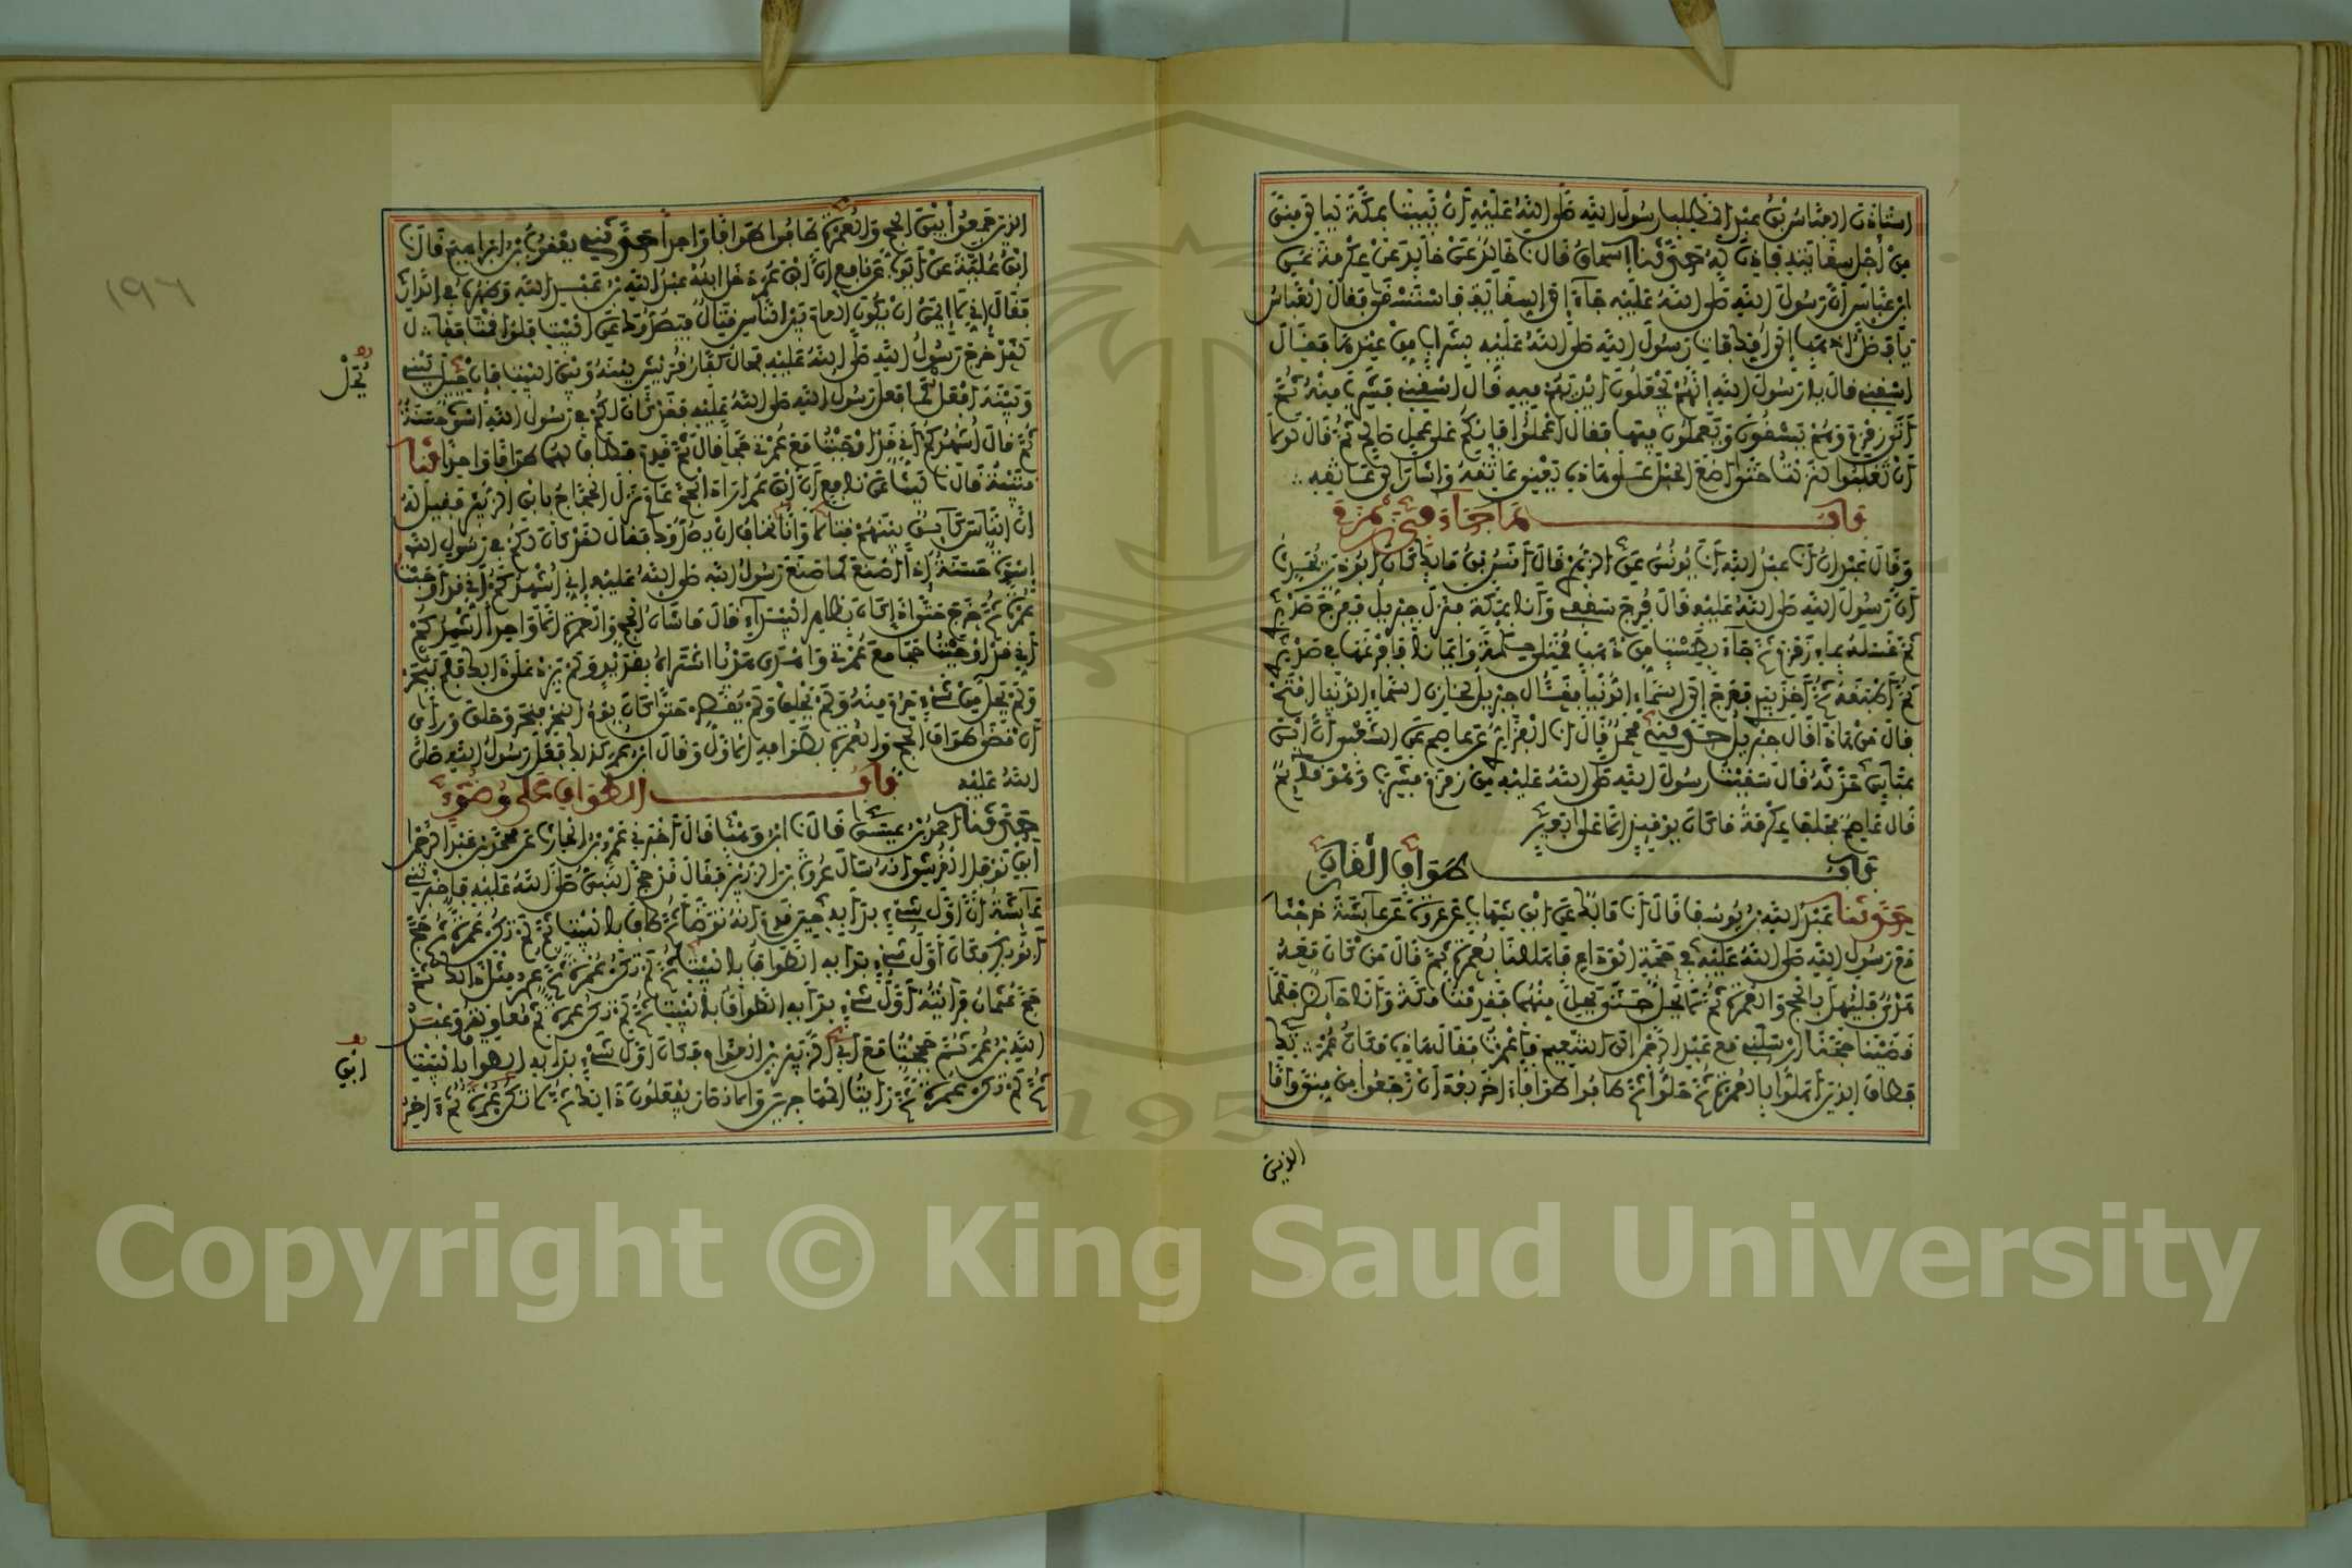 استاذن العباس بن عبد المطلب رسول الله صلى الله عليه أن يبيت بمكة ليالي منى
من أجل سقايته فاذن له حدثنا اسحاق قال نا خالد عن خالد عن عكرمة عن
ابن عباس أن رسول الله صلى الله عليه جاء إلى السقاية فاستسقى فقال العباس
يا فضل اذهب إلى امك فات رسول الله صلى الله عليه بشراب من عندها فقال
اسقني قال يا رسول الله إنهم يجعلون ايديهم فيه قال اسقني فشرب منه ثم
أتى زمزم وهم يسقون ويعملون فيها فقال اعملوا فإنكم على عمل صالح ثم قال لولا
أن تغلبوا لنزلت حتى اضع الحبل على هاذه يعني عاتقه واشار إلى عاتقه
باب ما جاء في زمزم
وقال عبدان أنا عبد الله أنا يونس عن الزهري قال أنس بن مالك كان ابو ذر يحدث
أن رسول الله صلى الله عليه قال فرج سقفي وأنا بمكة فنزل جبريل ففرج صدري
ثم غسله بماء زمزم ثم جاء بطست من ذهب ممتلئ حكمة وايمانا فافرغها في صدري
ثم أطبقه ثم أخذ بيدي فعرج إلى السماء الدنيا فقال جبريل لخازن السماء الدنيا افتح
قال من هاذا قال جبريل حدثني محمد قال انا الفزاري عن عاصم عن الشعبي أن ابن
عباس حدثه قال سقيت رسول الله صلى الله عليه من زمزم فشرب وهو قائم
قال عاصم فحلف عكرمة ما كان يومئذ الا على بعير
باب طواف القارن
حدثنا عبد الله بن يوسف قال أنا مالك عن ابن شهاب عن عروة عن عائشة خرجنا
مع رسول الله صلى الله عليه في حجة الوداع فاهللنا بعمرة ثم قال من كان معه
هدي فليهل بالحج والعمرة ثم لا يحل حتى يحل منهما فقدمت مكة وأنا حائض فلما
قضينا حجنا ارسلني مع عبد الرحمن إلى التنعيم فاعتمرت فقال هاذه مكان عمرتك
فطاف الذين اهلوا بالعمرة ثم حلوا ثم طافوا طوافا اخر بعد أن رجعوا من منى واما
الذين
الذين جمعوا بين الحج والعمرة طافوا طوافا واحدا حدثني يعقوب بن ابراهيم قال نا
ابن علية عن أيوب عن نافع أن ابن عمر دخل ابنه عبد الله بن عبد الله وظهره في الدار
فقال إني لا امن ان يكون العام بين الناس قتال فيصدوك عن البيت فلو اقمت فقال
قد خرج رسول الله صلى الله عليه فحال كفار قريش بينه وبين البيت فإن حيل بيني
وبينه افعل كما فعل رسول الله صلى الله عليه فقد كان لكم في رسول الله اسوة حسنة
ثم قال أشهدكم أني قد اوجبت مع عمرتي حجا قال ثم قدم فطاف لهما طوافا واحدا نا
قتيبة قال نا ليث عن نافع أن ابن عمر اراد الحج عام نزل الحجاج بابن الزبير فقيل له
ان الناس كائن بينهم قتال وانا نخاف ان يصدوك فقال لقد كان لكم في رسول الله
إسوة حسنة إذا أصنع كما صنع رسول الله صلى الله عليه إني أشهدكم أني قد اوجبت
عمرة ثم خرج حتى اذا كان بظاهر البيداء قال ما شان الحج والعمرة الا واحد أشهدكم
أني قد اوجبت حجا مع عمرتي واهدى هديا اشتراه بقديد ولم يزد على ذلك فلم ينحر
ولم يحل من شيء حرم منه ولم يحلق ولم يقصر حتى كان يوم النحر فنحر وحلق وراى
أن قد قضى طواف الحج والعمرة بطوافه الاول وقال ابن عمر كذلك فعل رسول الله صلى
الله عليه باب الطواف على وضوء
حدثنا احمد بن عيسى قال نا ابن وهب قال أخبرني عمرو بن الحارث عن محمد بن عبد الرحمن
ابن نوفل القرشي انه سال عروة بن الزبير فقال قد حج النبي صلى الله عليه فاخبرتني
عائشة أن أول شيء بدأ به حين قدم انه توضأ ثم طاف بالبيت ثم لم تكن عمرة ثم حج
أبو بكر فكان أول شيء بدا به الطواف بالبيت ثم لم تكن عمرة ثم عمر مثل ذلك ثم
حج عثمان فرايته أول شيء بدا به الطواف بالبيت ثم لم تكن عمرة ثم معاوية وعبد
الله بن عمر ثم حججت مع أبي الزبير بن العوام فكان أول شيء بدا به الطواف بالبيت
ثم لم تكن عمرة ثم رايت المهاجرين والانصار يفعلون ذلك ثم لم تكن عمرة ثم اخر
يحل
ابن
١٩٦
Copyright © King Saud University
1957